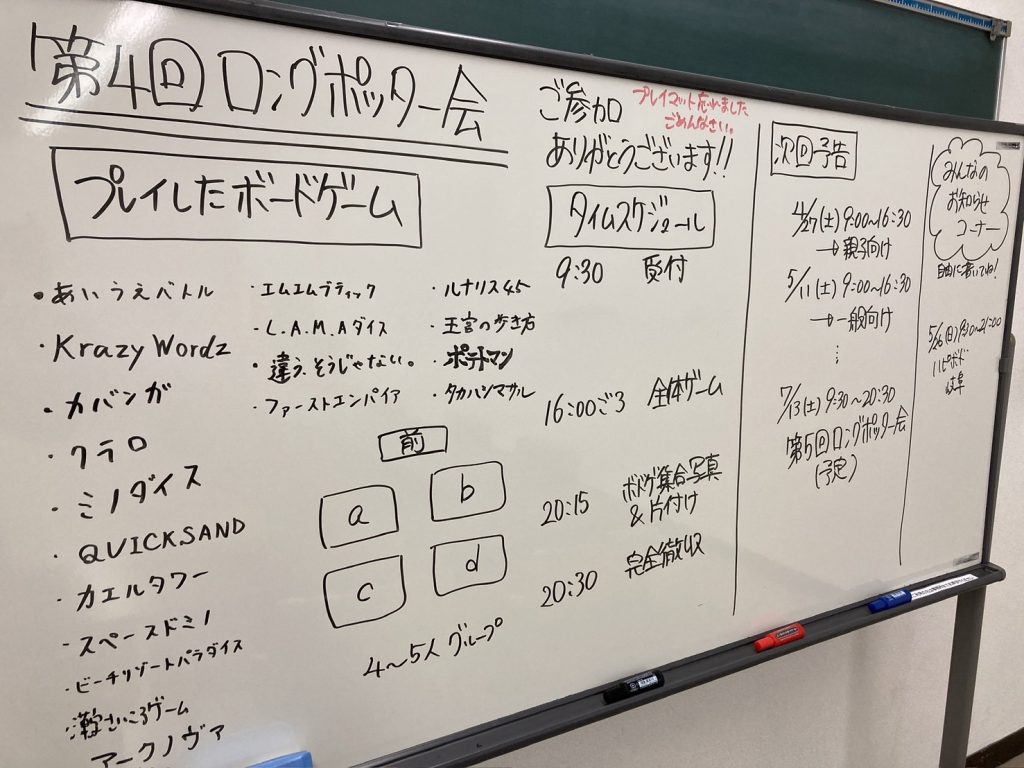 第4回 ロングポッター会
プレイしたボードゲーム
・あいうえバトル
・Krazy Wordz
・カバンガ
・クテロ
・ミノダイス
・QUICKSAND
・カエルタワー
・スペースドミノ
・ビーチリゾートパラダイス
さいころゲーム
アークノヴァ
・エムエムブティック
・L.A.M.Aダイス
・違う、そうじゃない。
・ファーストエンパイア
・ルナリス45
・王宮の歩き方
・ポテトマン
・タカハシマサル
前
a
b
c
d
4〜5人グループ
ご参加
ありがとうございます!!
プレイマット忘れました
ごめんなさい。
タイムスケジュール
9:30 受付
16:00ごろ 全体ゲーム
20:15 ボドゲ集合写真
&片付け
20:30 完全撤収
次回予告
4/27(土) 9:00〜16:30
→親子向け
5/11(土) 9:00〜16:30
→一般向け
⋮
7/13(土) 9:30〜20:30
第5回ロングポッター会
(予定)
みんなの
お知らせ
コーナー
自由に書いてね!
〜21:00
ハピボド
岐阜